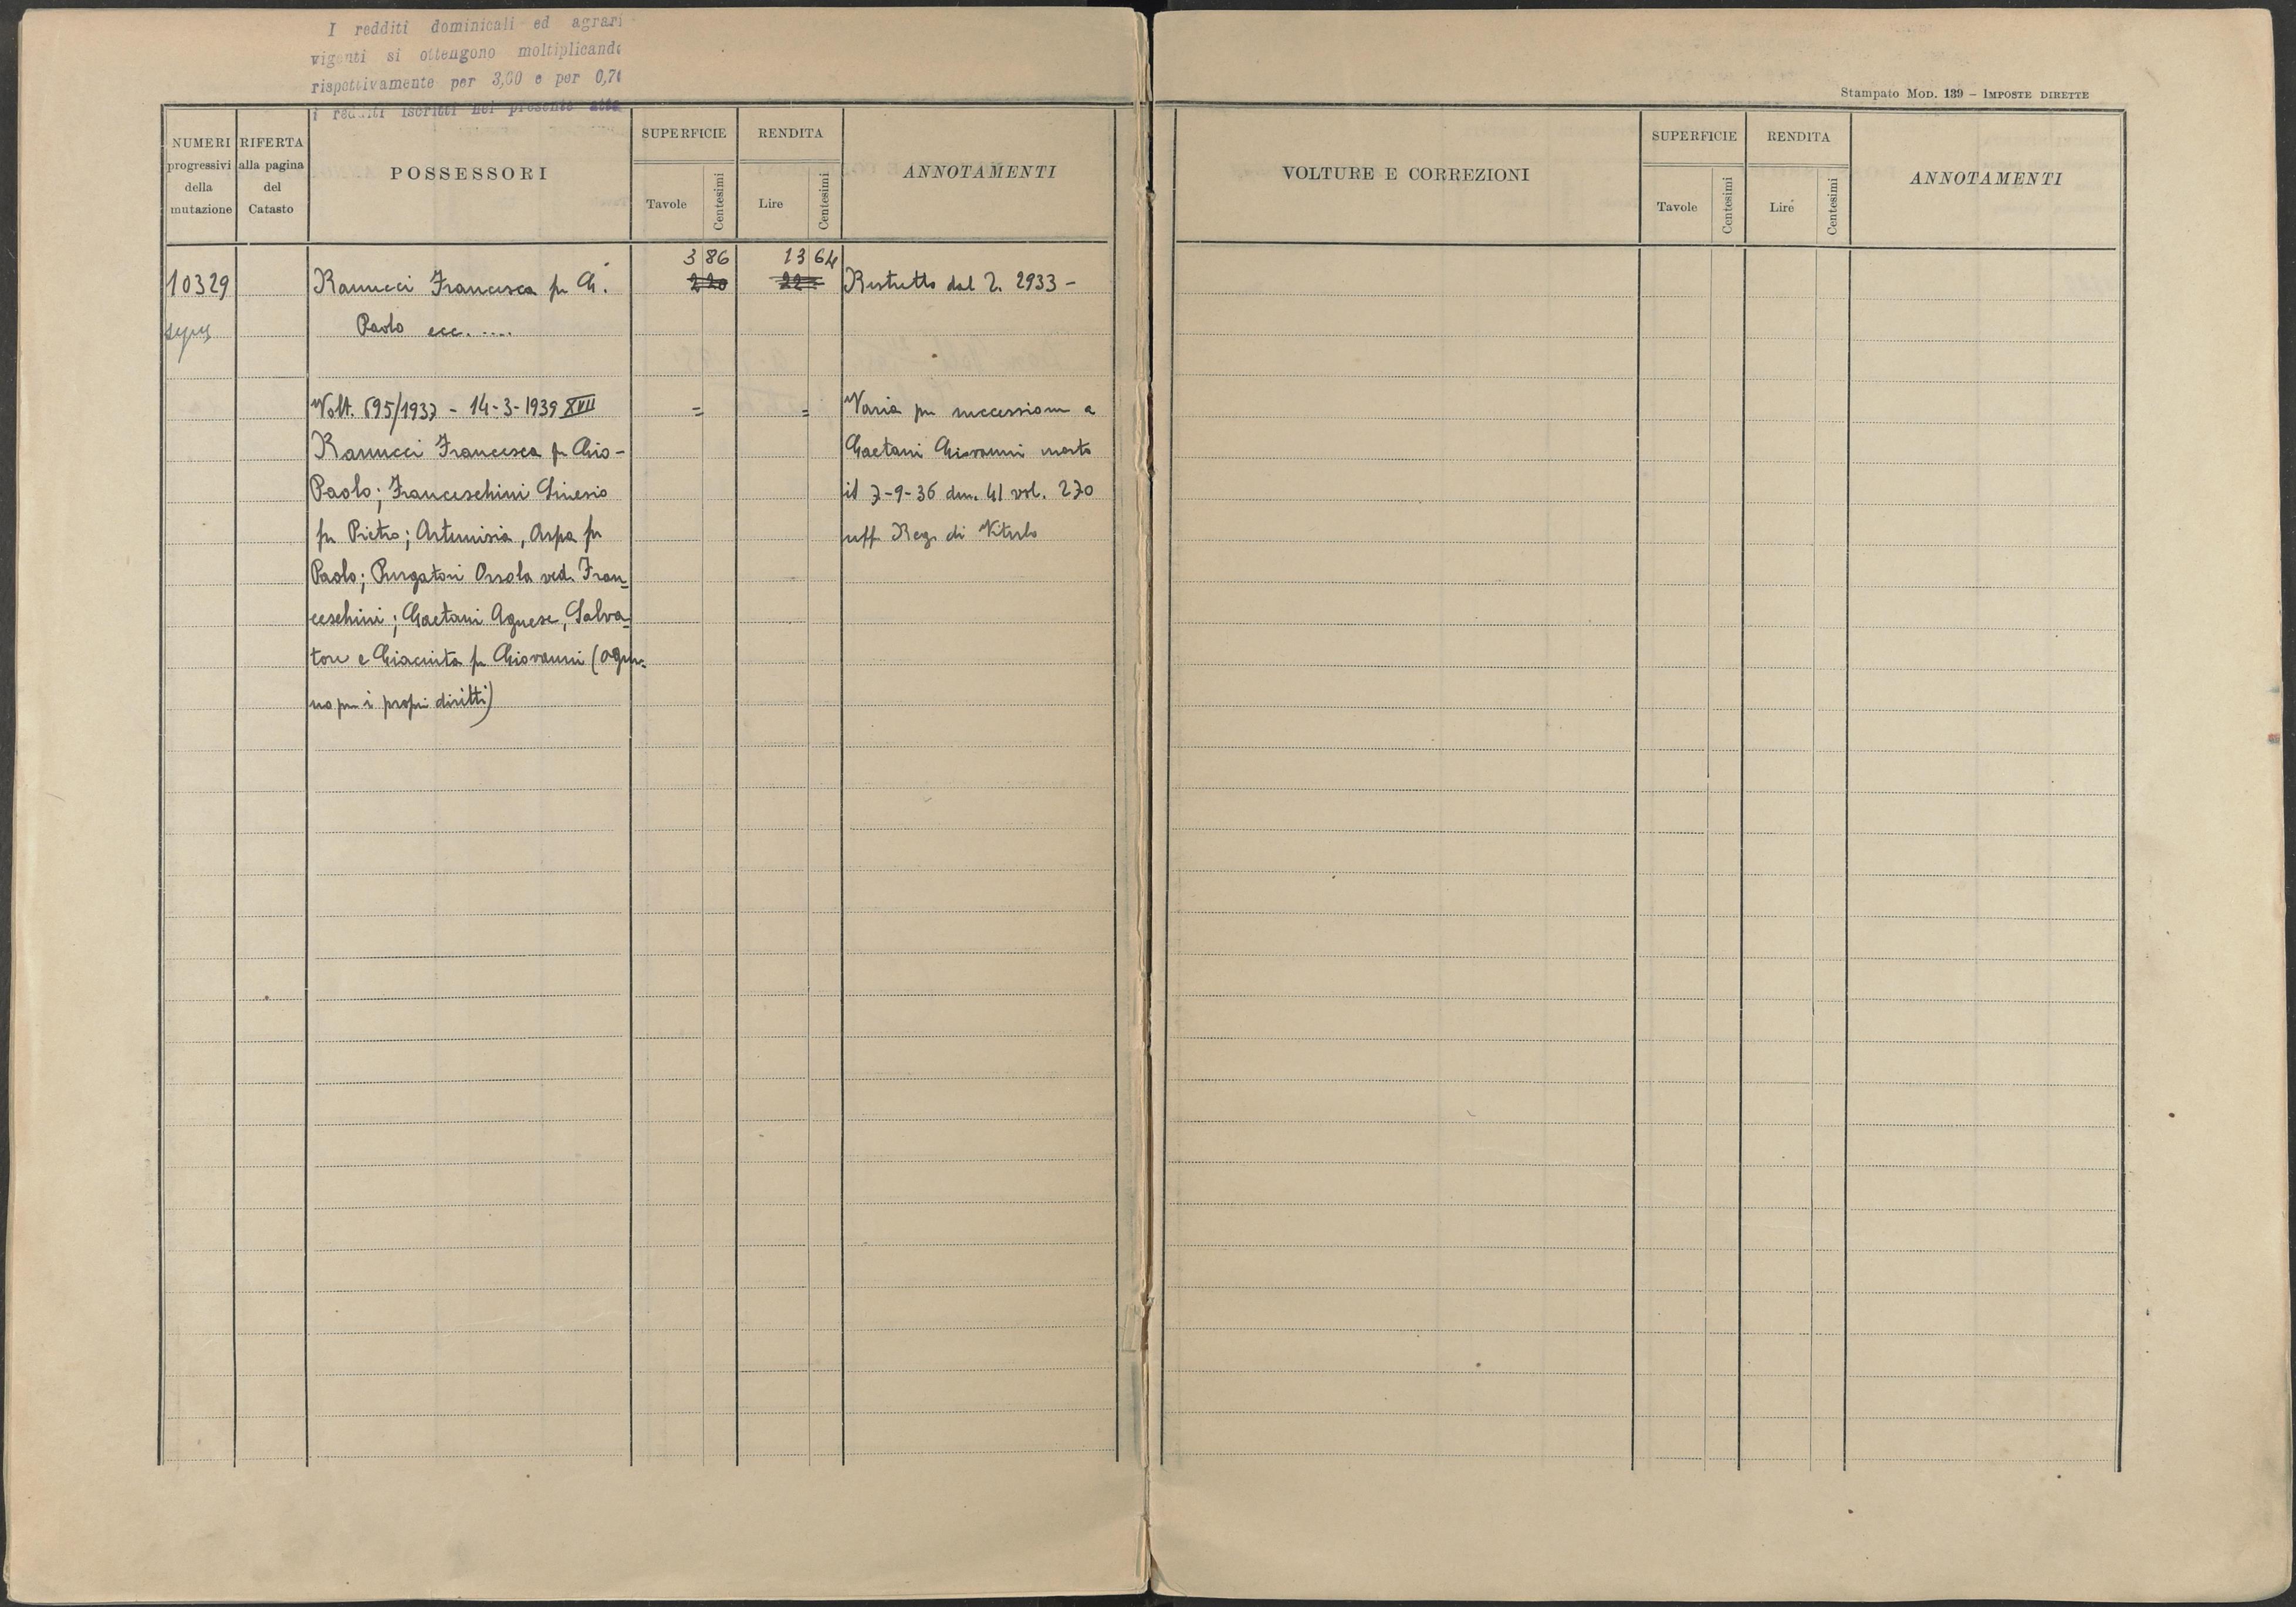 I redditi dominicali ed agrari
vigenti si ottengono moltiplicando
rispettivamente per 3,00 e per 0,70
i redditi iscritti nel presente atto
Stampato MOD. 139 – IMPOSTE DIRETTE
NUMERI progressivi della mutazione
RIFERTA alla pagina del Catasto
POSSESSORI
SUPERFICIE
Tavole Centesimi
RENDITA
Lire Centesimi
ANNOTAMENTI
VOLTURE E CORREZIONI
SUPERFICIE
Tavole Centesimi
RENDITA
Lire Centesimi
ANNOTAMENTI
3 86 13 64
10329 Ranucci Francesca fu G. Ristretto dal 2. 2933 -
Paolo ecc. ....
Volt. 695/1937 - 14-3-1939 XVII = = Varia per successione a
Ranucci Francesca fu Gio- Gaetani Giovanni morto
Paolo; Franceschini Sinesio il 7-9-36 den. 41 vol. 270
fu Pietro; Artemisia, Aspa fu uff. Reg. di
Paolo; Purgatori Orsola ved. Fran-
ceschini; Gaetani Agnese, Salva-
tore e Giacinta fu Giovanni (ognu-
no per i propri diritti)